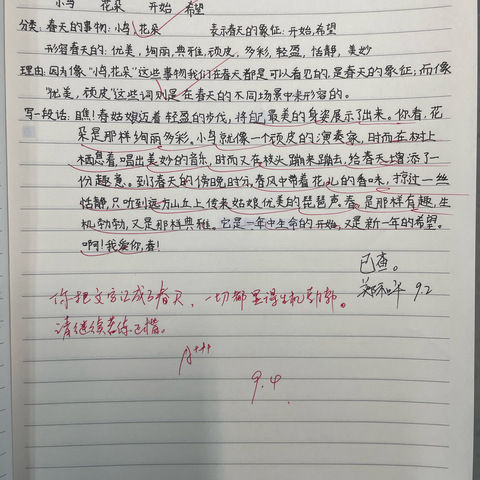 小鸟 花朵 开始 希望
分类:春天的事物:小鸟,花朵 表示春天的象征:开始,希望
形容春天的:优美,绚丽,典雅,顽皮,多彩,轻盈,恬静,美妙
理由:因为像“小鸟,花朵”这些事物我们在春天都是可以看见的,是春天的象征;而像
“优美,顽皮”这些词则是在春天的不同场景中来形容的。
写一段话:瞧!春姑娘迈着轻盈的步伐,将自己最美的身姿展示了出来。你看,花
朵是那样绚丽多彩。小鸟就像一个顽皮的演奏家,时而在树上
栖息着,唱出美妙的音乐,时而又在枝头蹦来蹦去,给春天增添了一
份趣意。到了春天的傍晚时分,春风中带着花儿的香味,掠过一丝
恬静,只听到远方山丘上传来姑娘优美的琵琶声。春,是那样有趣,生
机勃勃,又是那样典雅。它是一年中生命的开始,又是新一年的希望。
啊!我爱你,春!
已查。
9.2
你把文字记成了春天,一切都显得生机勃勃。
请继续苦练正楷。
A+++
9.4